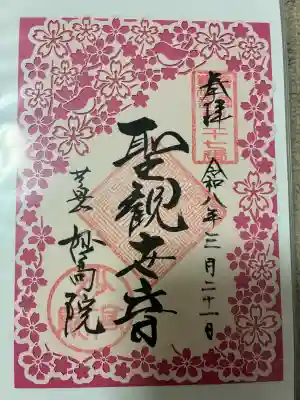 奉拝
令和八年三月二十一日
聖観世音
妙高院